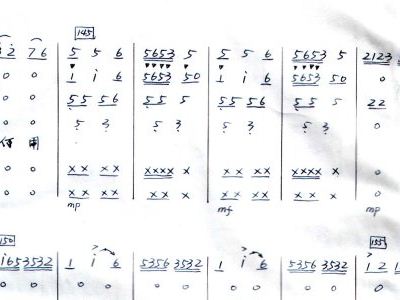 145
3 2 7 6 | 5 5 6 | 5653 5 | 5 5 6 | 5653 5 | 2123
0 0 | 1 i 6 | 5653 50 | 1 i 6 | 5653 50 | 0
0 0 | 55 56 | 55 5 | 55 56 | 55 5 | 22
0 0 | 5 3 | 5 3 | 5 3 | 5 3 | 0
何 用
0 0 | XX XX | XXXX X | XX XX | XXXX X | 0
0 0 | XX XX | XX X | XX XX | XX X | 0
mp mf mp
150 155
i65 3532 | 1 i 6 | 5356 3532 | 1 i 6 | 5356 3532 | i 2
0 0 | 0 0 | 0 0 | 0 0 | 0 0 | 0